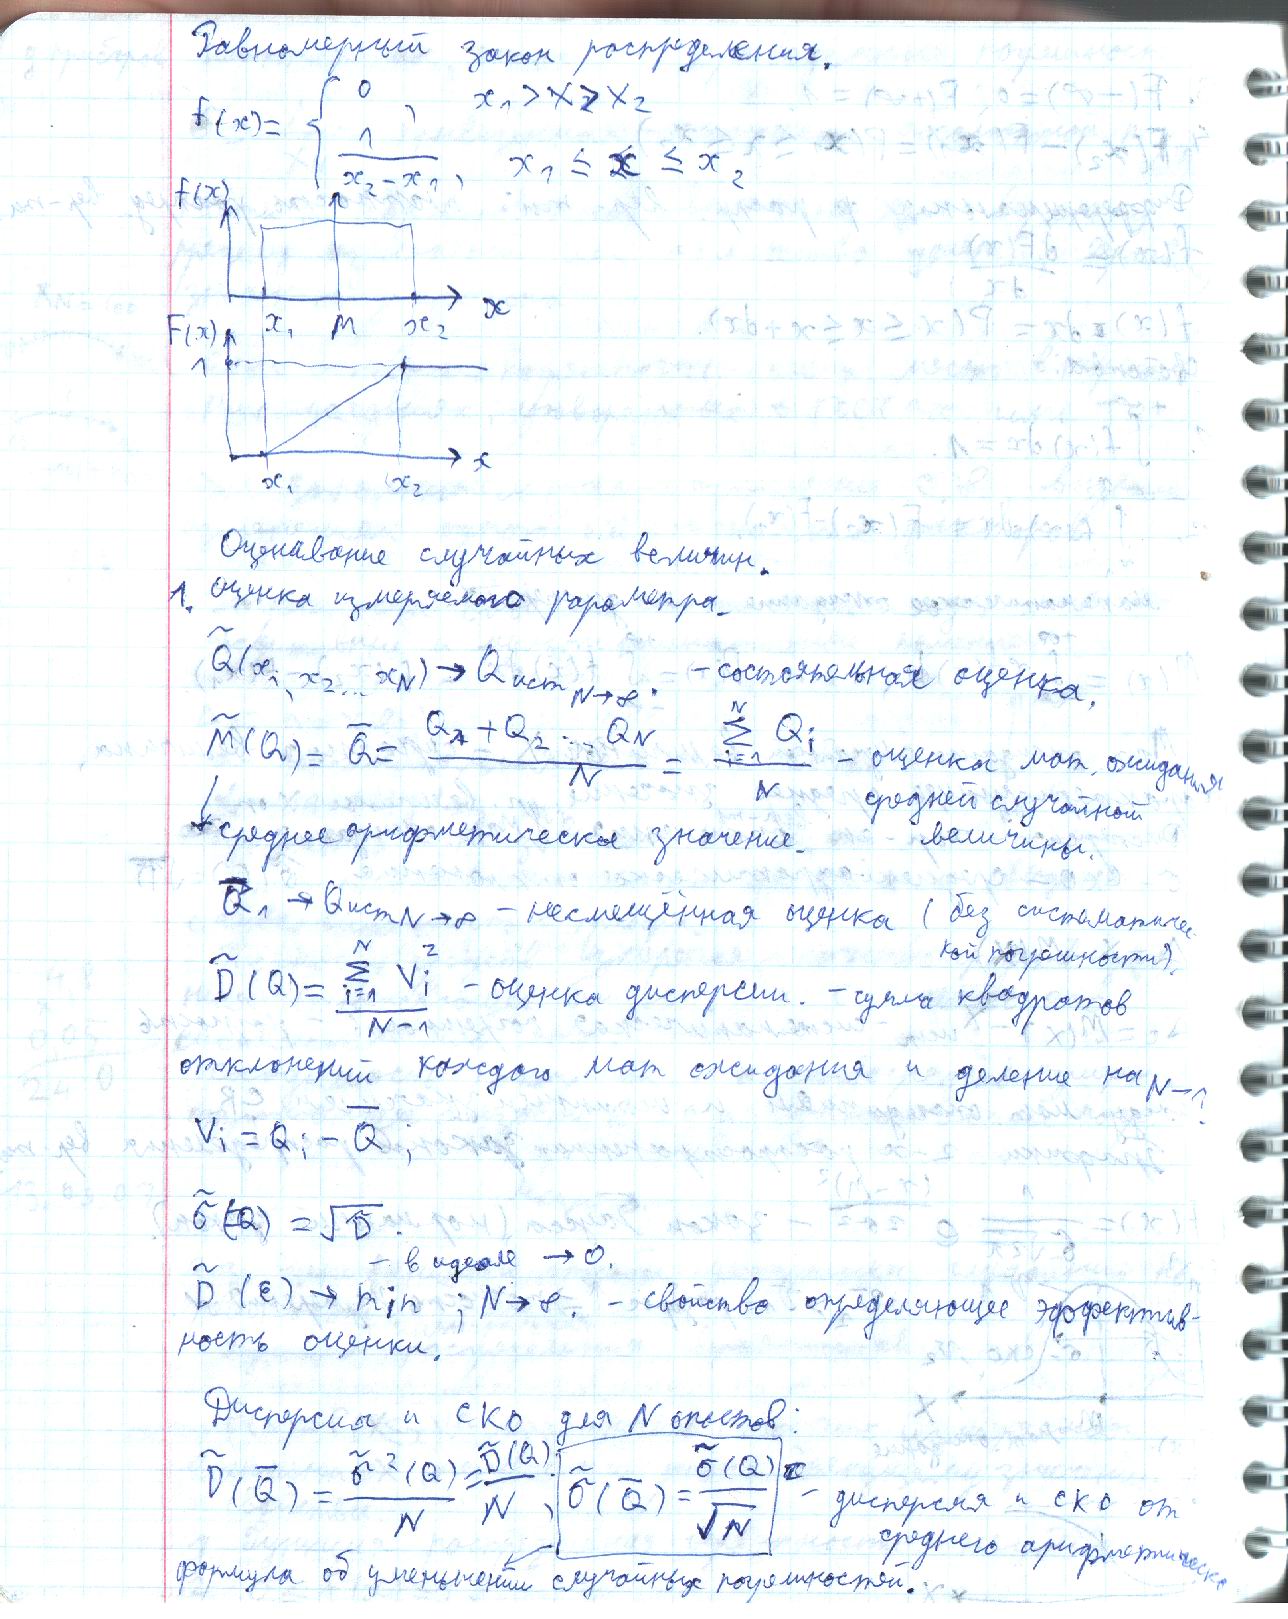 Равномерный закон распределения.
f(x)= { 0, x₁ > x > x₂
1/(x₂-x₁), x₁ ≤ x ≤ x₂
f(x)
x₁ M x₂ x
F(x)
1
x₁ x₂ x
Оценивание случайных величин.
1. оценка измеряемого параметра.
Q̃(x₁, x₂... xN) → Qист N→∞. - состоятельная оценка.
M̃(Q) = Q̄ = (Q₁+Q₂...QN)/N = (Σ i=1 N Qi)/N - оценка мат. ожидания
средней случайной
величины.
→ среднее арифметическое значение.
Q̄₁ → Qист N→∞ - несмещённая оценка (без системотичес-
кой погрешности).
D̃(Q) = (Σ i=1 N Vi²)/(N-1) - оценка дисперсии. - сумма квадратов
отклонений каждого мат ожидания и деление на N-1
Vi = Qi - Q̄;
σ̃(Q) = √D̃.
- в идеале → 0.
D̃(ε) → min ; N→∞. - свойство определяющее эффектив-
ность оценки.
Дисперсия и СКО для N опытов:
D̃(Q̄) = σ̃²(Q)/N = D̃(Q)/N; σ̃(Q̄) = σ̃(Q)/√N - дисперсия и СКО от
среднего арифметическо
формула об уменьшении случайных погрешностей.